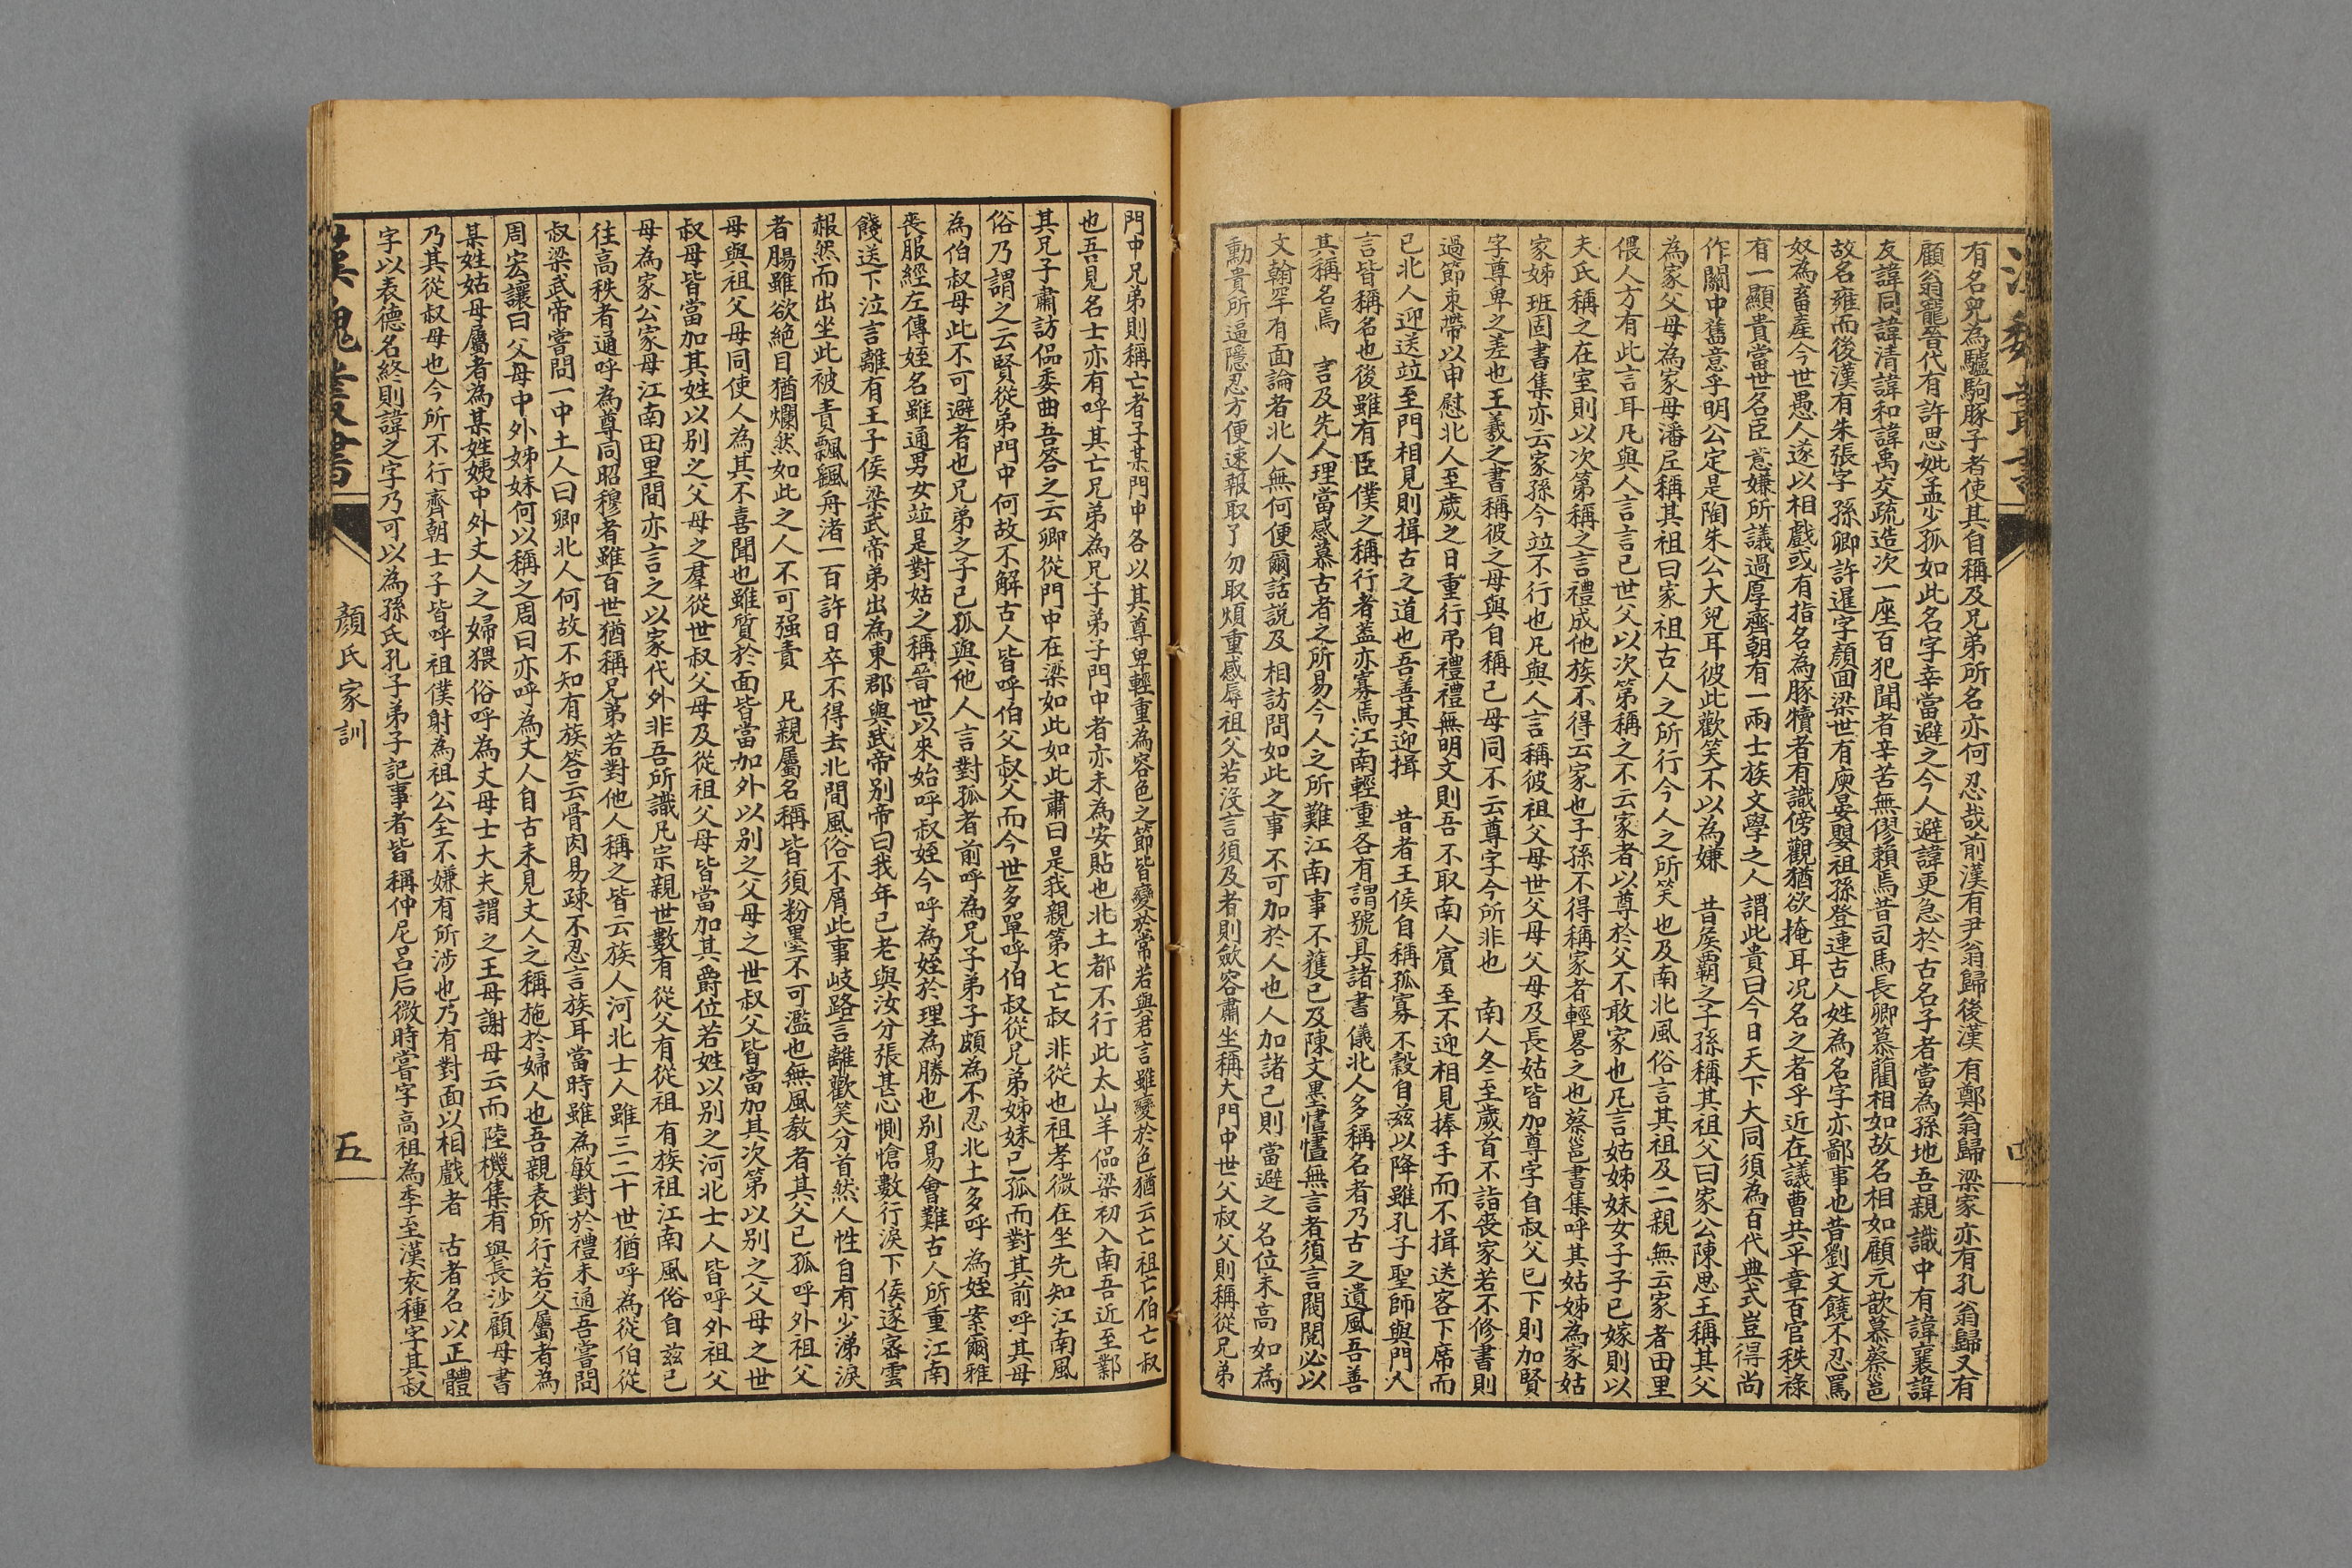 有名兒為驢駒豚子者使其自稱及兄弟所名亦何忍哉前漢有尹翁歸後漢有鄭翁歸梁家亦有孔翁歸又有
顧翁寵晉代有許思妣孟少孤如此名字幸當避之今人避諱更急於古名子者當為孫地吾親識中有諱襄諱
友諱同諱清諱和諱禹交疏造次一座百犯聞者辛苦無憀賴焉昔司馬長卿慕藺相如故名相如顧元歎慕蔡邕
故名雍而後漢有朱張字孫卿許暹字顏回梁世有庾晏嬰祖孫登連古人姓為名字亦鄙事也昔劉文饒不忍罵
奴為畜產今世愚人遂以相戲或有指名為豚犢者有識傍觀猶欲掩耳况名之者乎近在議曹共平章百官秩祿
有一顯貴當世名臣意嫌所議過厚齊朝有一兩士族文學之人謂此貴曰今日天下大同須為百代典式豈得尚
作關中舊意乎明公定是陶朱公大兒耳彼此歡笑不以為嫌　昔侯霸之子孫稱其祖父曰家公陳思王稱其父
為家父母為家母潘尼稱其祖曰家祖古人之所行今人之所笑也及南北風俗言其祖及二親無云家者田里
偎人方有此言耳凡與人言言己世父以次第稱之不云家者以尊於父不敢家也凡言姑姊妹女子子已嫁則以
夫氏稱之在室則以次第稱之言禮成他族不得云家也子孫不得稱家者輕畧之也蔡邕書集呼其姑姊為家姑
家姊班固書集亦云家孫今竝不行也凡與人言稱彼祖父母世父母父母及長姑皆加尊字自叔父已下則加賢
字尊卑之差也王羲之書稱彼之母與自稱己母同不云尊字今所非也　南人冬至歲首不詣喪家若不修書則
過節束帶以申慰北人至歲之日重行弔禮禮無明文則吾不取南人賓至不迎相見捧手而不揖送客下席而
已北人迎送竝至門相見則揖古之道也吾善其迎揖　昔者王侯自稱孤寡不穀自兹以降雖孔子聖師與門人
言皆稱名也後雖有臣僕之稱行者蓋亦寡焉江南輕重各有謂號具諸書儀北人多稱名者乃古之遺風吾善
其稱名焉　言及先人理當感慕古者之所易今人之所難江南事不獲已及陳文墨㦎㦎無言者須言閥閱必以
文翰罕有面論者北人無何便爾話說及相訪問如此之事不可加於人也人加諸己則當避之名位未高如為
勳貴所逼隱忍方便速報取了勿取煩重感辱祖父若沒言須及者則斂容肅坐稱大門中世父叔父則稱從兄弟
門中兄弟則稱亡者子某門中各以其尊卑輕重為容色之節皆變於常若與君言雖變於色猶云亡祖亡伯亡叔
也吾見名士亦有呼其亡兄弟為兄子弟子門中者亦未為安貼也北土都不行此太山羊偘梁初入南吾近至鄴
其兄子肅訪偘委曲吾答之云卿從門中在梁如此如此肅曰是我親第七亡叔非從也祖孝徵在坐先知江南風
俗乃謂之云賢從弟門中何故不解古人皆呼伯父叔父而今世多單呼伯叔從兄弟姊妹已孤而對其前呼其母
為伯叔母此不可避者也兄弟之子已孤與他人言對孤者前呼為兄子弟子頗為不忍北土多呼為姪案爾雅
喪服經左傳姪名雖通男女竝是對姑之稱晉世以來始呼叔姪今呼為姪於理為勝也別易會難古人所重江南
餞送下泣言離有王子侯梁武帝弟出為東郡與武帝別帝曰我年已老與汝分張甚心惻愴數行淚下侯遂密雲
赧然而出坐此被責飄颻舟渚一百許日卒不得去北間風俗不屑此事岐路言離歡笑分首然人性自有少涕淚
者腸雖欲絕目猶爛然如此之人不可强責　凡親屬名稱皆須粉墨不可濫也無風教者其父已孤呼外祖父
母與祖父母同使人為其不喜聞也雖質於面皆當加外以別之父母之世叔父皆當加其次第以別之父母之世
叔母皆當加其姓以別之父母之羣從世叔父母及從祖父母皆當加其爵位若姓以別之河北士人皆呼外祖父
母為家公家母江南田里間亦言之以家代外非吾所識凡宗親世數有從父有從祖有族祖江南風俗自兹已
往高秩者通呼為尊同昭穆者雖百世猶稱兄弟若對他人稱之皆云族人河北士人雖三二十世猶呼為從伯從
叔梁武帝嘗問一中土人曰卿北人何故不知有族答云骨肉易疎不忍言族耳當時雖為敏對於禮未通吾嘗問
周宏讓曰父母中外姊妹何以稱之周曰亦呼為丈人自古未見丈人之稱施於婦人也吾親表所行若父屬者為
某姓姑母屬者為某姓姨中外丈人之婦猥俗呼為丈母士大夫謂之王母謝母云而陸機集有與長沙顧母書
乃其從叔母也今所不行齊朝士子皆呼祖僕射為祖公全不嫌有所涉也乃有對面以相戲者　古者名以正體
字以表德名終則諱之字乃可以為孫氏孔子弟子記事者皆稱仲尼呂后微時嘗字高祖為季至漢袁種字其叔
漢魏叢書
顏氏家訓
五